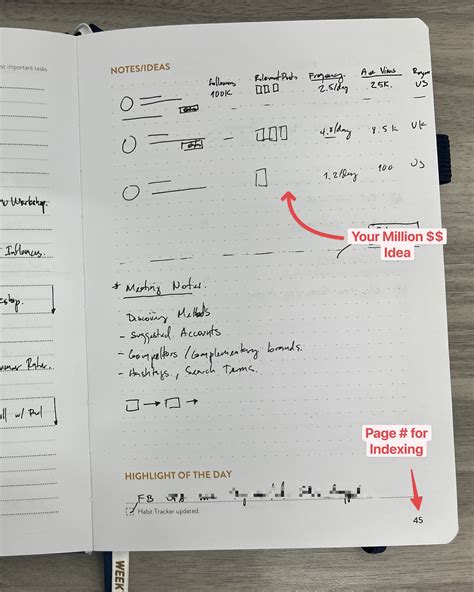 st important tasks
NOTES/IDEAS
Followers Relevant Posts Frequency Ave Views Region
100K 2.5/day 25K. US
4.8/day 8.5K UK
1.2/day 900 US
Your Million $$
Idea
* Meeting Notes.
Discovery Methods
- Suggested Accounts
- Competitors / Complementary brands.
- Hashtags, Search Terms.
Workshop.
Influences.
w/
Page # for
Indexing
HIGHLIGHT OF THE DAY
FB
Habit Tracker updated.
45
WEEK